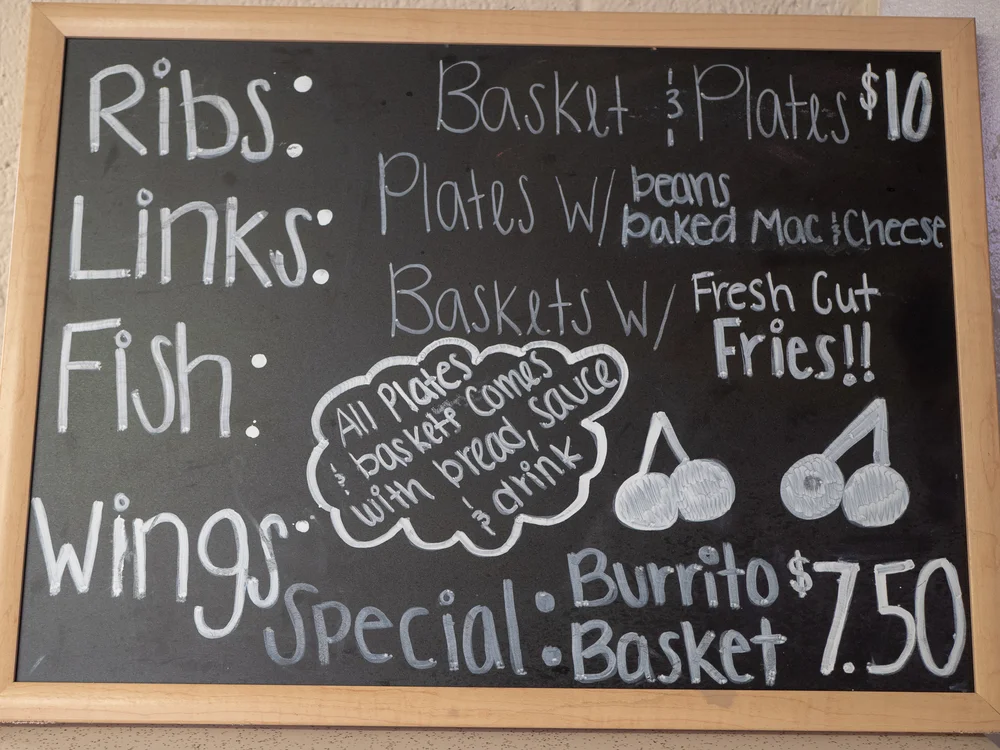 Ribs: Basket & Plates $10
Links: Plates w/ beans
baked Mac & Cheese
Baskets w/ Fresh Cut
Fries!!
Fish:
All Plates
& baskets Comes
with bread, sauce
& drink
Wings:
Special: Burrito $7.50
Basket